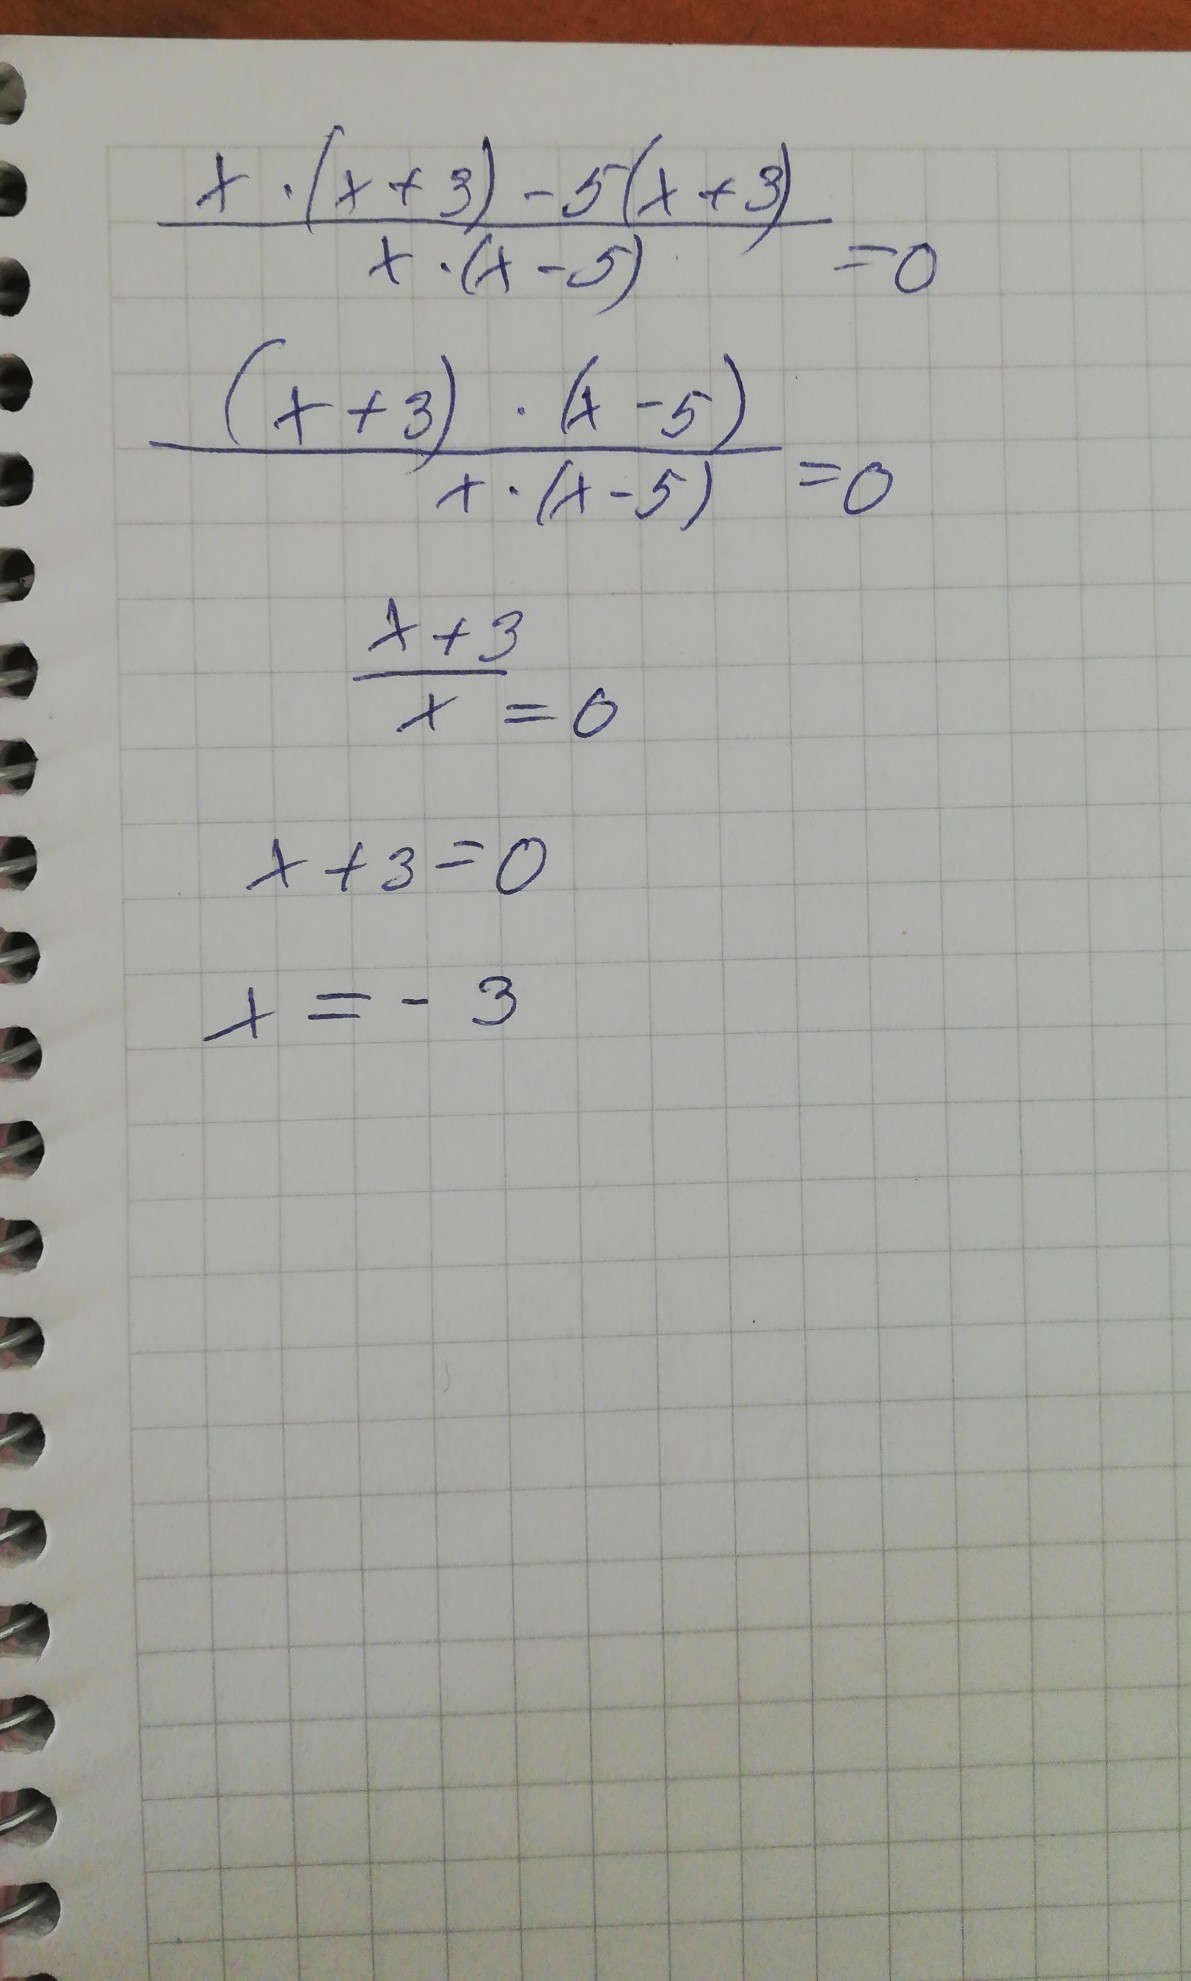 x · (x + 3) - 5(x + 3)
x · (x - 5) = 0
(x + 3) · (x - 5)
x · (x - 5) = 0
x + 3
x = 0
x + 3 = 0
x = - 3